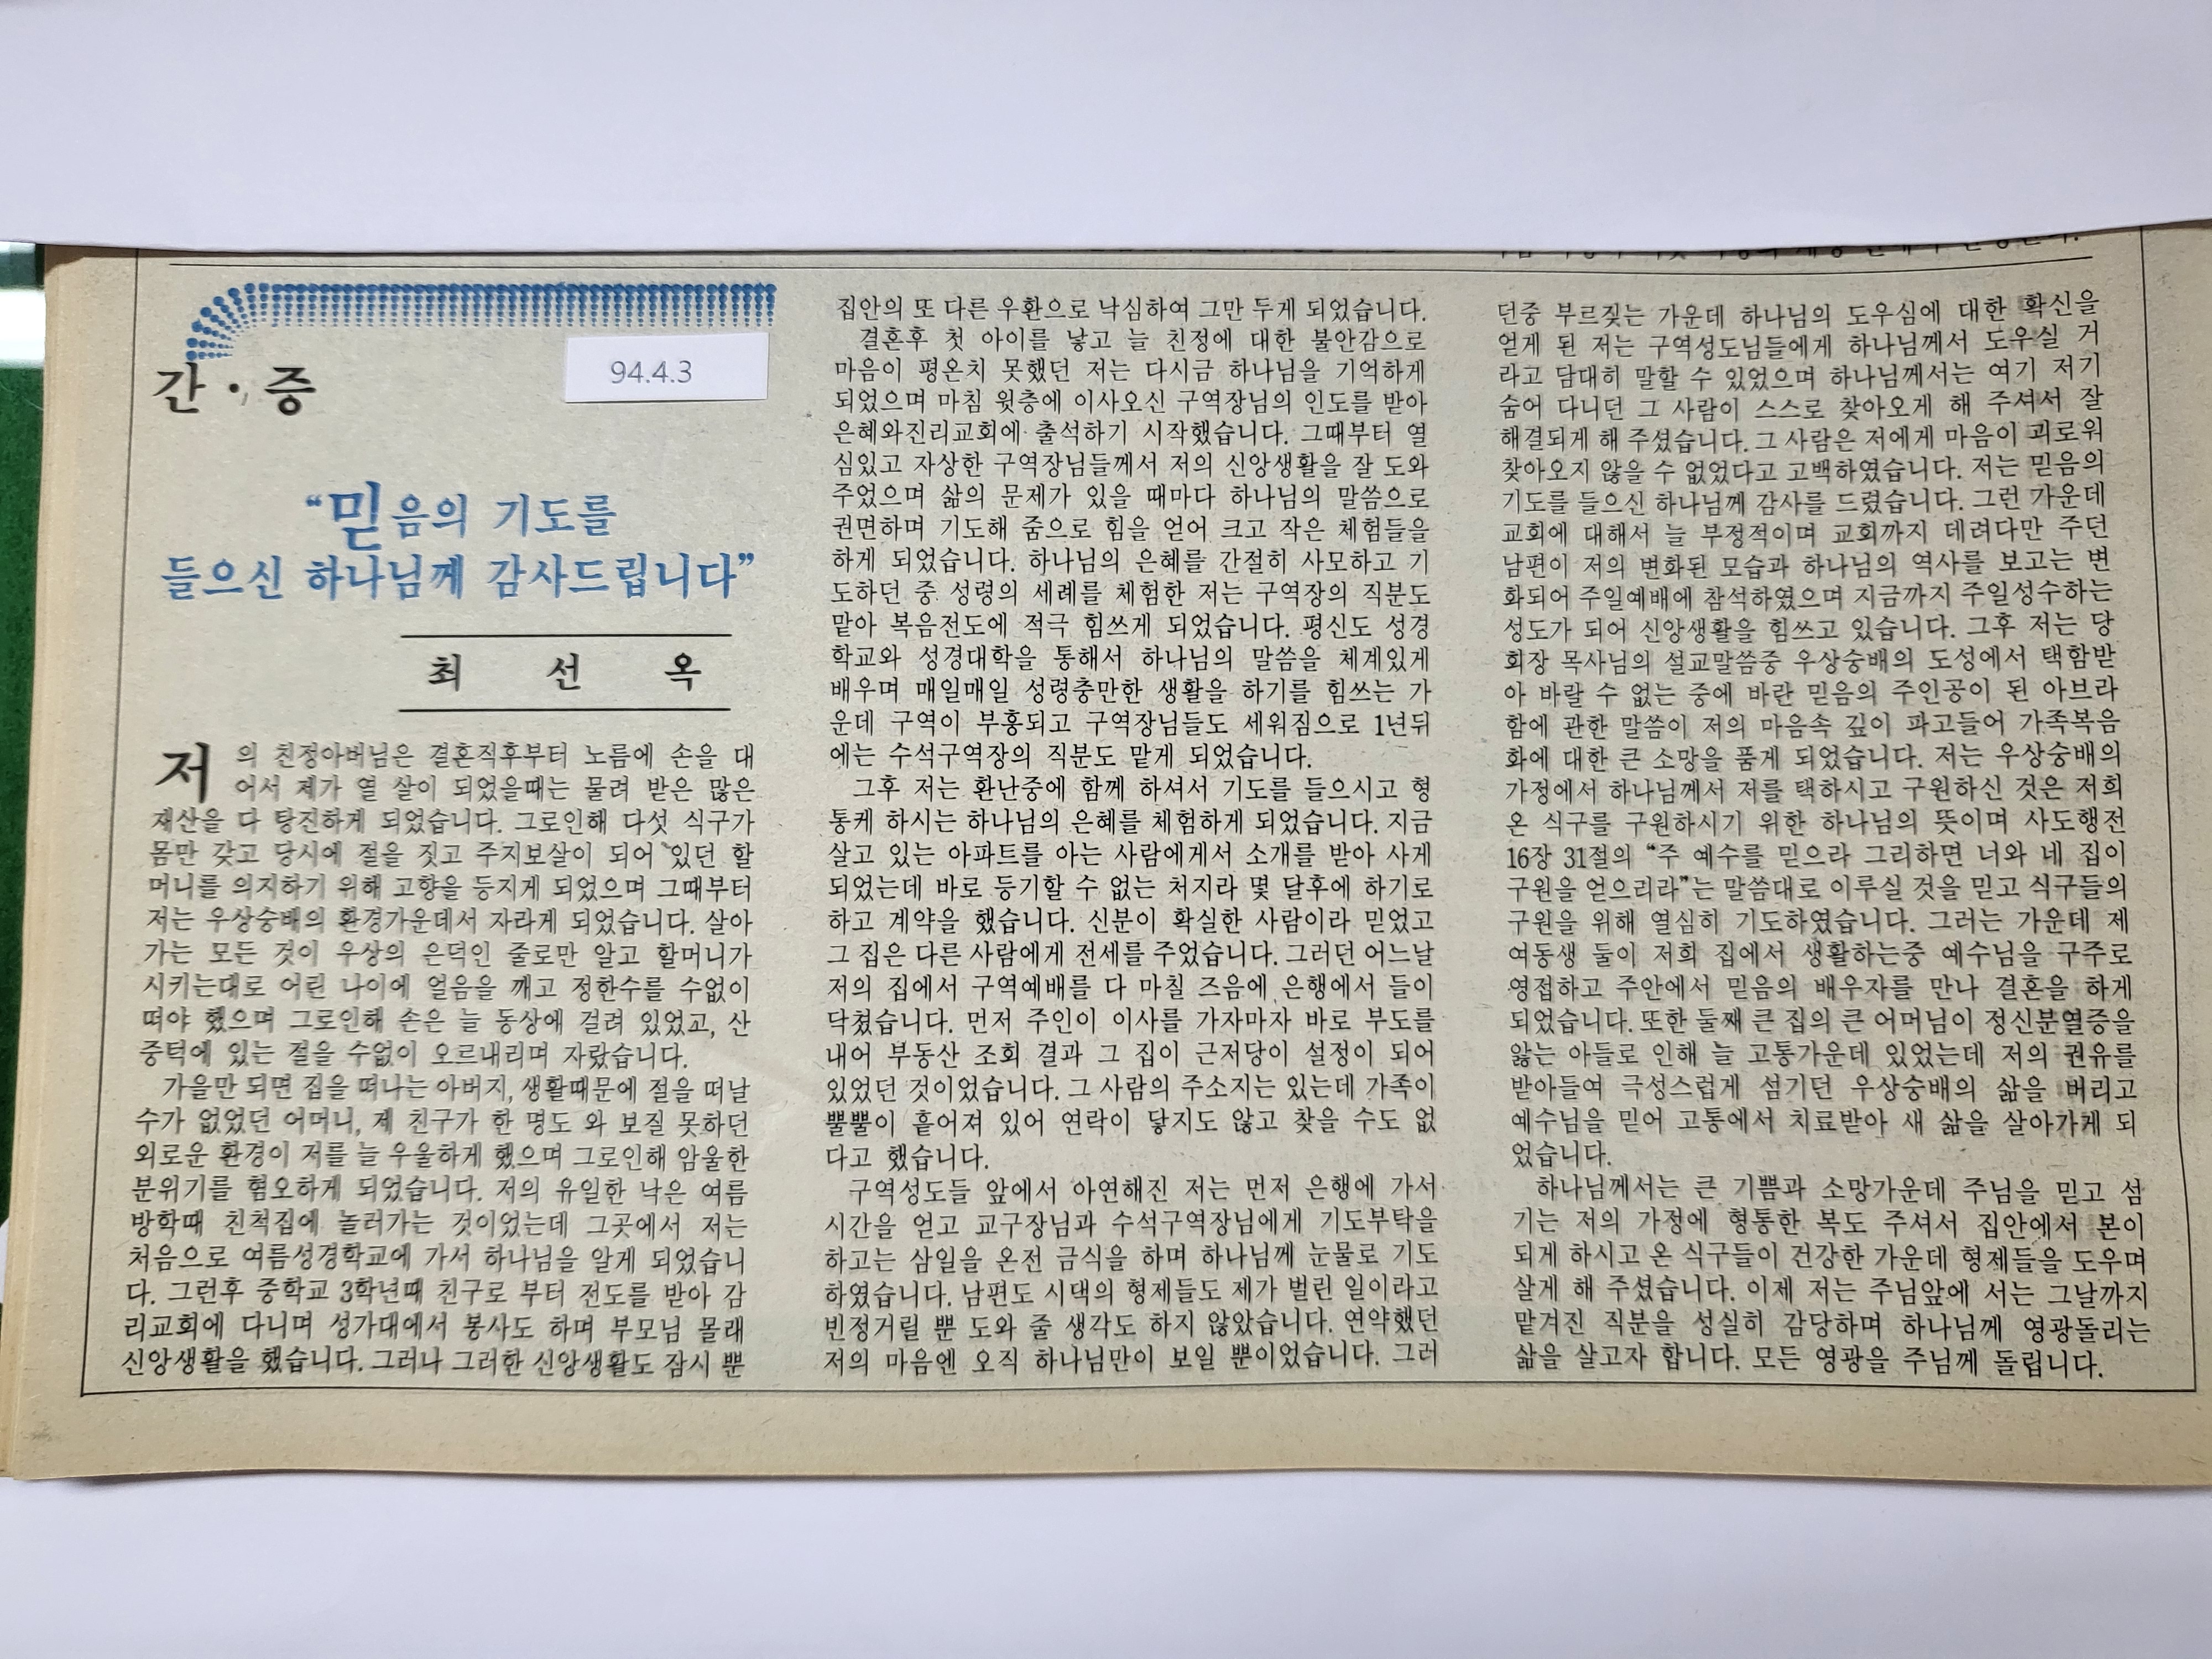 간·증
94.4.3
“믿음의 기도를
들으신 하나님께 감사드립니다”
최 선 옥
저의 친정아버님은 결혼직후부터 노름에 손을 대
어서 제가 열 살이 되었을때는 물려 받은 많은
재산을 다 탕진하게 되었습니다. 그로인해 다섯 식구가
몸만 갖고 당시에 절을 짓고 주지보살이 되어 있던 할
머니를 의지하기 위해 고향을 등지게 되었으며 그때부터
저는 우상숭배의 환경가운데서 자라게 되었습니다. 살아
가는 모든 것이 우상의 은덕인 줄로만 알고 할머니가
시키는대로 어린 나이에 얼음을 깨고 정한수를 수없이
떠야 했으며 그로인해 손은 늘 동상에 걸려 있었고, 산
중턱에 있는 절을 수없이 오르내리며 자랐습니다.
가을만 되면 집을 떠나는 아버지, 생활때문에 절을 떠날
수가 없었던 어머니, 제 친구가 한 명도 와 보질 못하던
외로운 환경이 저를 늘 우울하게 했으며 그로인해 암울한
분위기를 혐오하게 되었습니다. 저의 유일한 낙은 여름
방학때 친척집에 놀러가는 것이었는데 그곳에서 저는
처음으로 여름성경학교에 가서 하나님을 알게 되었습니
다. 그런후 중학교 3학년때 친구로 부터 전도를 받아 감
리교회에 다니며 성가대에서 봉사도 하며 부모님 몰래
신앙생활을 했습니다. 그러나 그러한 신앙생활도 잠시 뿐
집안의 또 다른 우환으로 낙심하여 그만 두게 되었습니다.
결혼후 첫 아이를 낳고 늘 친정에 대한 불안감으로
마음이 평온치 못했던 저는 다시금 하나님을 기억하게
되었으며 마침 윗층에 이사오신 구역장님의 인도를 받아
은혜와진리교회에 출석하기 시작했습니다. 그때부터 열
심있고 자상한 구역장님들께서 저의 신앙생활을 잘 도와
주었으며 삶의 문제가 있을 때마다 하나님의 말씀으로
권면하며 기도해 줌으로 힘을 얻어 크고 작은 체험들을
하게 되었습니다. 하나님의 은혜를 간절히 사모하고 기
도하던 중 성령의 세례를 체험한 저는 구역장의 직분도
맡아 복음전도에 적극 힘쓰게 되었습니다. 평신도 성경
학교와 성경대학을 통해서 하나님의 말씀을 체계있게
배우며 매일매일 성령충만한 생활을 하기를 힘쓰는 가
운데 구역이 부흥되고 구역장님들도 세워짐으로 1년뒤
에는 수석구역장의 직분도 맡게 되었습니다.
그후 저는 환난중에 함께 하셔서 기도를 들으시고 형
통케 하시는 하나님의 은혜를 체험하게 되었습니다. 지금
살고 있는 아파트를 아는 사람에게서 소개를 받아 사게
되었는데 바로 등기할 수 없는 처지라 몇 달후에 하기로
하고 계약을 했습니다. 신분이 확실한 사람이라 믿었고
그 집은 다른 사람에게 전세를 주었습니다. 그러던 어느날
저의 집에서 구역예배를 다 마칠 즈음에 은행에서 들이
닥쳤습니다. 먼저 주인이 이사를 가자마자 바로 부도를
내어 부동산 조회 결과 그 집이 근저당이 설정이 되어
있었던 것이었습니다. 그 사람의 주소지는 있는데 가족이
뿔뿔이 흩어져 있어 연락이 닿지도 않고 찾을 수도 없
다고 했습니다.
구역성도들 앞에서 아연해진 저는 먼저 은행에 가서
시간을 얻고 교구장님과 수석구역장님에게 기도부탁을
하고는 삼일을 온전 금식을 하며 하나님께 눈물로 기도
하였습니다. 남편도 시댁의 형제들도 제가 벌린 일이라고
빈정거릴 뿐 도와 줄 생각도 하지 않았습니다. 연약했던
저의 마음엔 오직 하나님만이 보일 뿐이었습니다. 그러
던중 부르짖는 가운데 하나님의 도우심에 대한 확신을
얻게 된 저는 구역성도님들에게 하나님께서 도우실 거
라고 담대히 말할 수 있었으며 하나님께서는 여기 저기
숨어 다니던 그 사람이 스스로 찾아오게 해 주셔서 잘
해결되게 해 주셨습니다. 그 사람은 저에게 마음이 괴로워
찾아오지 않을 수 없었다고 고백하였습니다. 저는 믿음의
기도를 들으신 하나님께 감사를 드렸습니다. 그런 가운데
교회에 대해서 늘 부정적이며 교회까지 데려다만 주던
남편이 저의 변화된 모습과 하나님의 역사를 보고는 변
화되어 주일예배에 참석하였으며 지금까지 주일성수하는
성도가 되어 신앙생활을 힘쓰고 있습니다. 그후 저는 당
회장 목사님의 설교말씀중 우상숭배의 도성에서 택함받
아 바랄 수 없는 중에 바란 믿음의 주인공이 된 아브라
함에 관한 말씀이 저의 마음속 깊이 파고들어 가족복음
화에 대한 큰 소망을 품게 되었습니다. 저는 우상숭배의
가정에서 하나님께서 저를 택하시고 구원하신 것은 저희
온 식구를 구원하시기 위한 하나님의 뜻이며 사도행전
16장 31절의 “주 예수를 믿으라 그리하면 너와 네 집이
구원을 얻으리라”는 말씀대로 이루실 것을 믿고 식구들의
구원을 위해 열심히 기도하였습니다. 그러는 가운데 제
여동생 둘이 저희 집에서 생활하는중 예수님을 구주로
영접하고 주안에서 믿음의 배우자를 만나 결혼을 하게
되었습니다. 또한 둘째 큰 집의 큰 어머님이 정신분열증을
앓는 아들로 인해 늘 고통가운데 있었는데 저의 권유를
받아들여 극성스럽게 섬기던 우상숭배의 삶을 버리고
예수님을 믿어 고통에서 치료받아 새 삶을 살아가게 되
었습니다.
하나님께서는 큰 기쁨과 소망가운데 주님을 믿고 섬
기는 저의 가정에 형통한 복도 주셔서 집안에서 본이
되게 하시고 온 식구들이 건강한 가운데 형제들을 도우며
살게 해 주셨습니다. 이제 저는 주님앞에 서는 그날까지
맡겨진 직분을 성실히 감당하며 하나님께 영광돌리는
삶을 살고자 합니다. 모든 영광을 주님께 돌립니다.